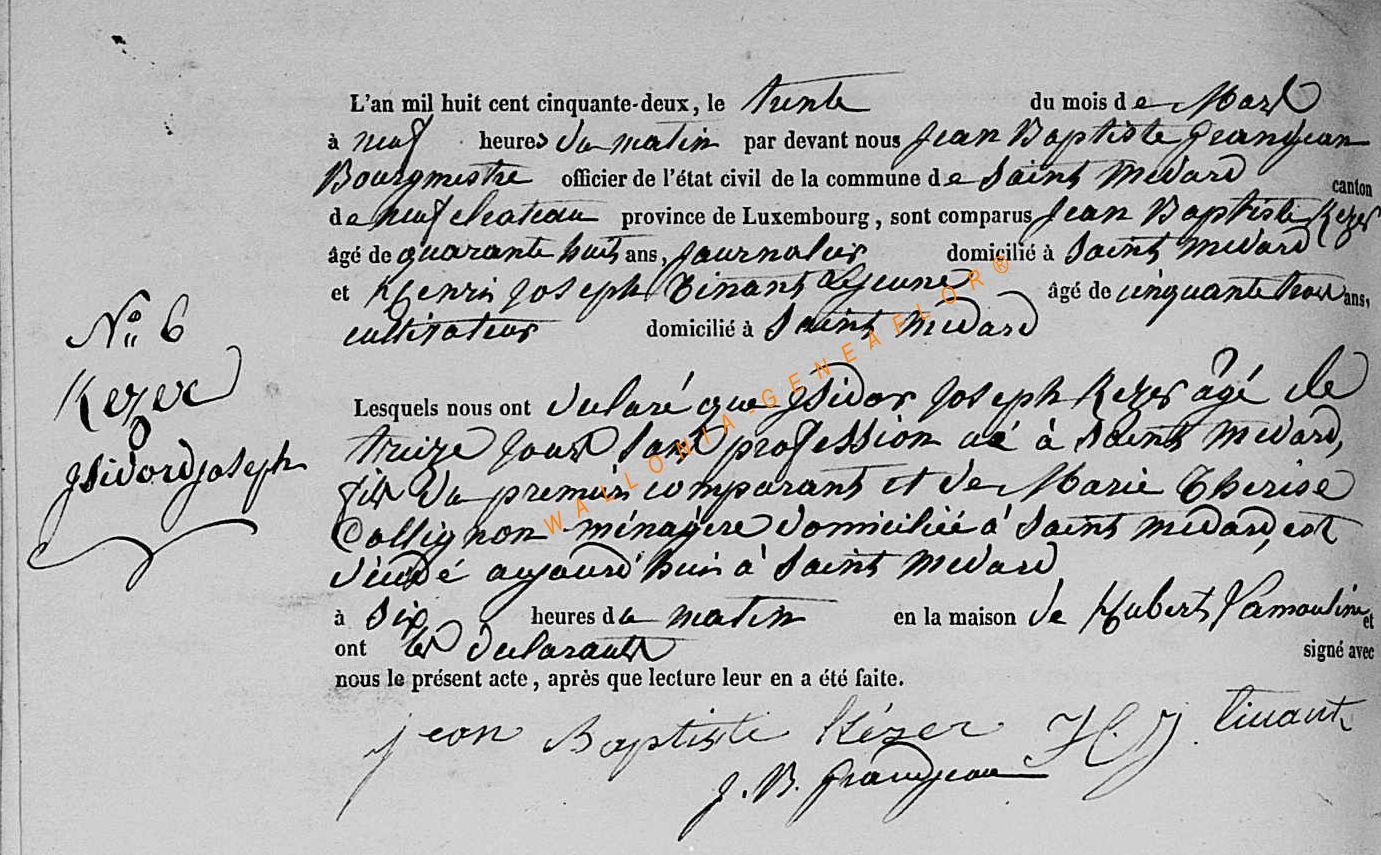 L'an mil huit cent cinquante-deux, le trente du mois de Mars
à neuf heures du matin par devant nous Jean Baptiste Grandjean
Bourgmestre officier de l'état civil de la commune de Saint Médard canton
de neufchateau province de Luxembourg, sont comparus Jean Baptiste Kezer
âgé de quarante huit ans, journalier domicilié à Saint Médard
et Henri Joseph Tinant Lejeune âgé de cinquante trois ans,
cultivateur domicilié à Saint Médard
N° 6
Kezer
Isidord joseph
Lesquels nous ont déclaré que Isidor Joseph Kezer âgé de
treize jours sans profession né à Saint Médard,
fils du premier comparant et de Marie Thérèse
Collignon ménagère domiciliée à Saint Médard, est
décédé aujourd'hui à Saint Médard
à six heures du matin en la maison de Hubert Lamouline et
ont les déclarants signé avec
nous le présent acte, après que lecture leur en a été faite.
jean Baptiste Kézer H. J. tinant
J. B. Grandjean
WALLONIA-GENEAFLOR®